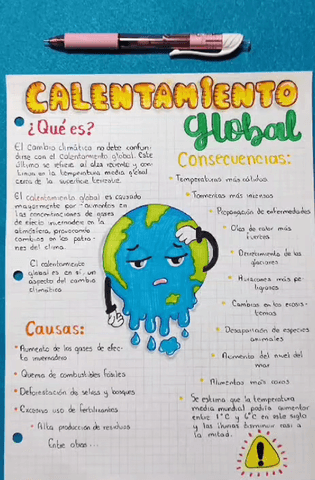 CALENTAMIENTO
global
¿Qué es?
El cambio climático no debe confun-
dirse con el calentamiento global. Este
último se refiere al alza reciente y con-
tinua en la temperatura media global
cerca de la superficie terrestre.
El calentamiento global es causado
mayormente por aumentos en
las concentraciones de gases
de efecto invernadero en la
atmósfera, provocando
cambios en los patro-
nes del clima.
El calentamiento
global es en sí, un
aspecto del cambio
climático
Causas:
Aumento de los gases de efec-
to invernadero
Quema de combustibles fósiles
Deforestación de selvas y bosques
Excesivo uso de fertilizantes
Alta producción de residuos
Entre otras...
Consecuencias:
Temperaturas más cálidas
Tormentas más intensas
Propagación de enfermedades
Olas de calor más
fuertes
Derretimiento de los
glaciares
Huracanes más pe-
ligrosos
Cambios en los ecosis-
temas
Desaparición de especies
animales
Aumento del nivel del
mar
Alimentos más caros
Se estima que la temperatura
media mundial podría aumentar
entre 1°C y 6°C en este siglo
y las lluvias disminuir casi a
la mitad.
!